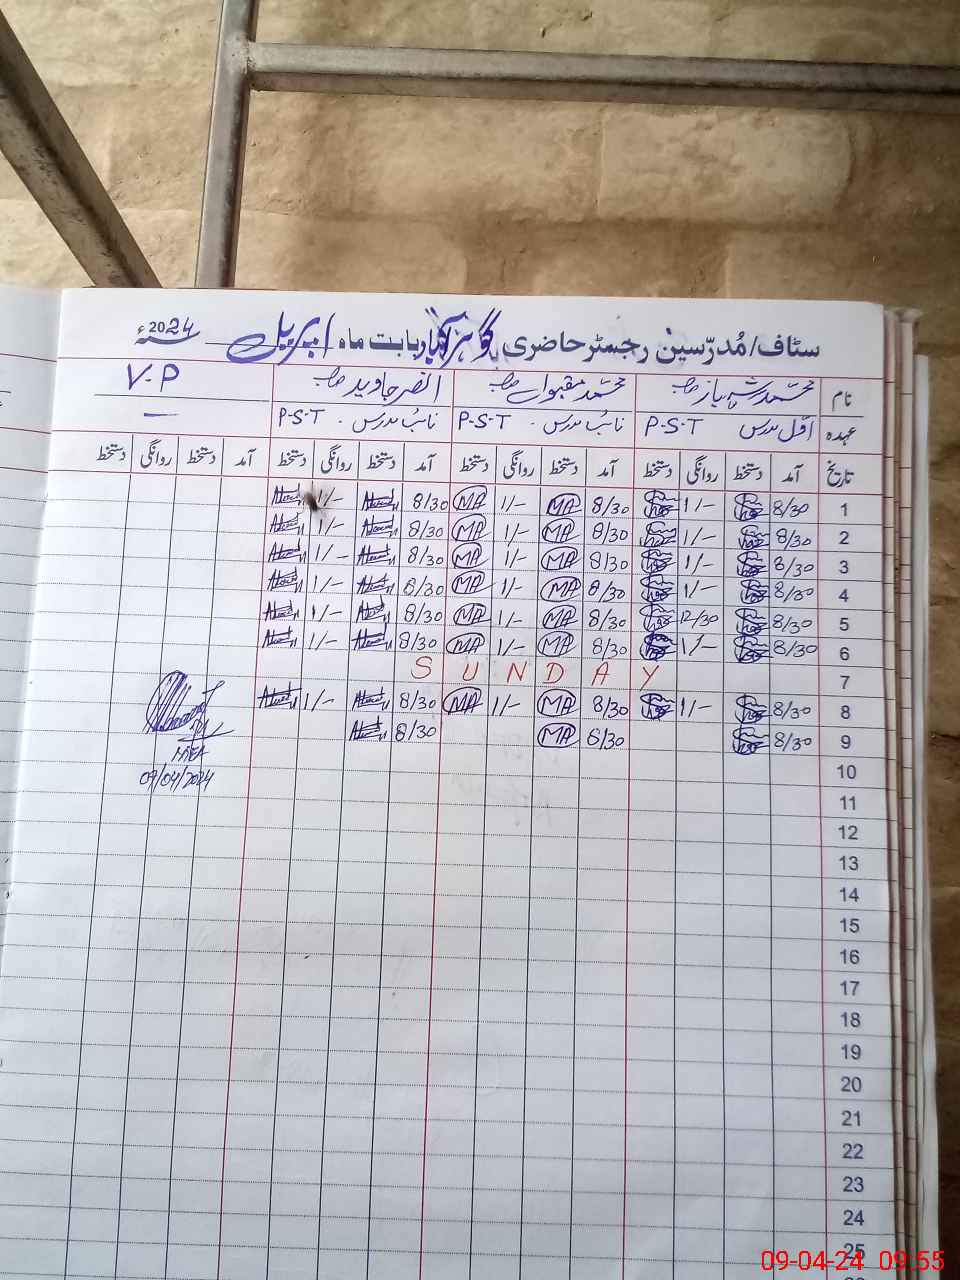 سٹاف/مُدرّسین رجسٹر حاضری بابت ماہ اپریل 2024ء
نام محمد مقبول صاحب انصر جاوید صاحب V.P
عہدہ اوّل مدرس P.S.T نائب مدرس P.S.T نائب مدرس P.S.T —
تاریخ آمد دستخط روانگی دستخط آمد دستخط روانگی دستخط آمد دستخط روانگی دستخط آمد دستخط روانگی دستخط
1 8/30 1/- 8/30 MA 1/- MA 8/30 1/-
2 8/30 1/- 8/30 MA 1/- MA 8/30 1/-
3 8/30 1/- 8/30 MA 1/- MA 8/30 1/-
4 8/30 1/- 8/30 MA 1/- MA 8/30 1/-
5 8/30 12/30 8/30 MA 1/- MA 8/30 1/-
6 8/30 1/- 8/30 MA 1/- MA 8/30 1/-
7 SUNDAY
8 8/30 1/- 8/30 MA 1/- MA 8/30 1/-
9 8/30 8/30 MA 8/30
09/04/2024
10
11
12
13
14
15
16
17
18
19
20
21
22
23
24
25
09-04-24 09:55